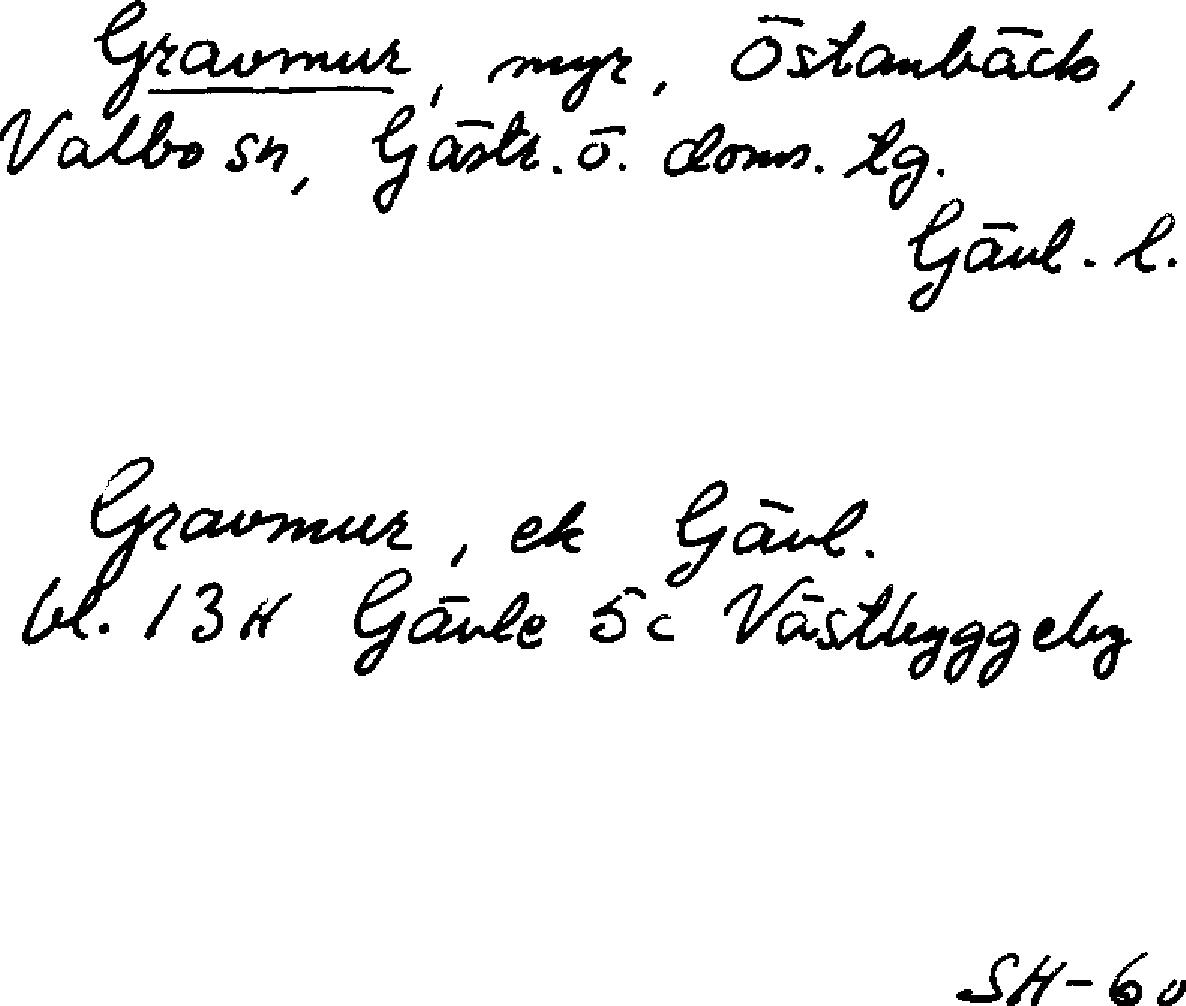 Gravmur, myr, Östanbäck,
Valbo sn, Gästr. ö. doms. tg.
Gävl. l.
Gravmur, ek Gävl.
bl. 13H Gävle 5c Västbyggeby
SH-60